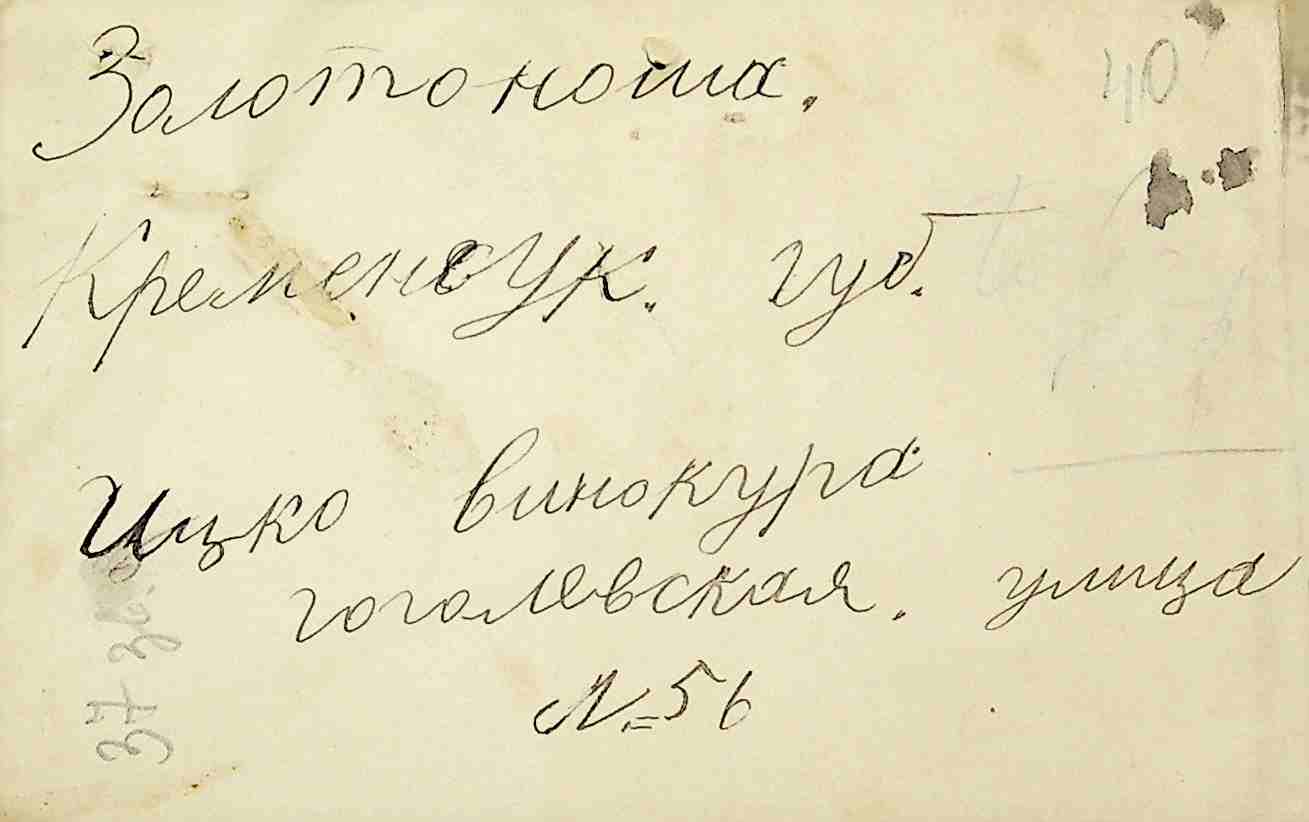 Золотоноша.
40
Кременчук. губ.
Ицко винокура
гоголевская. улица
№ 56
37